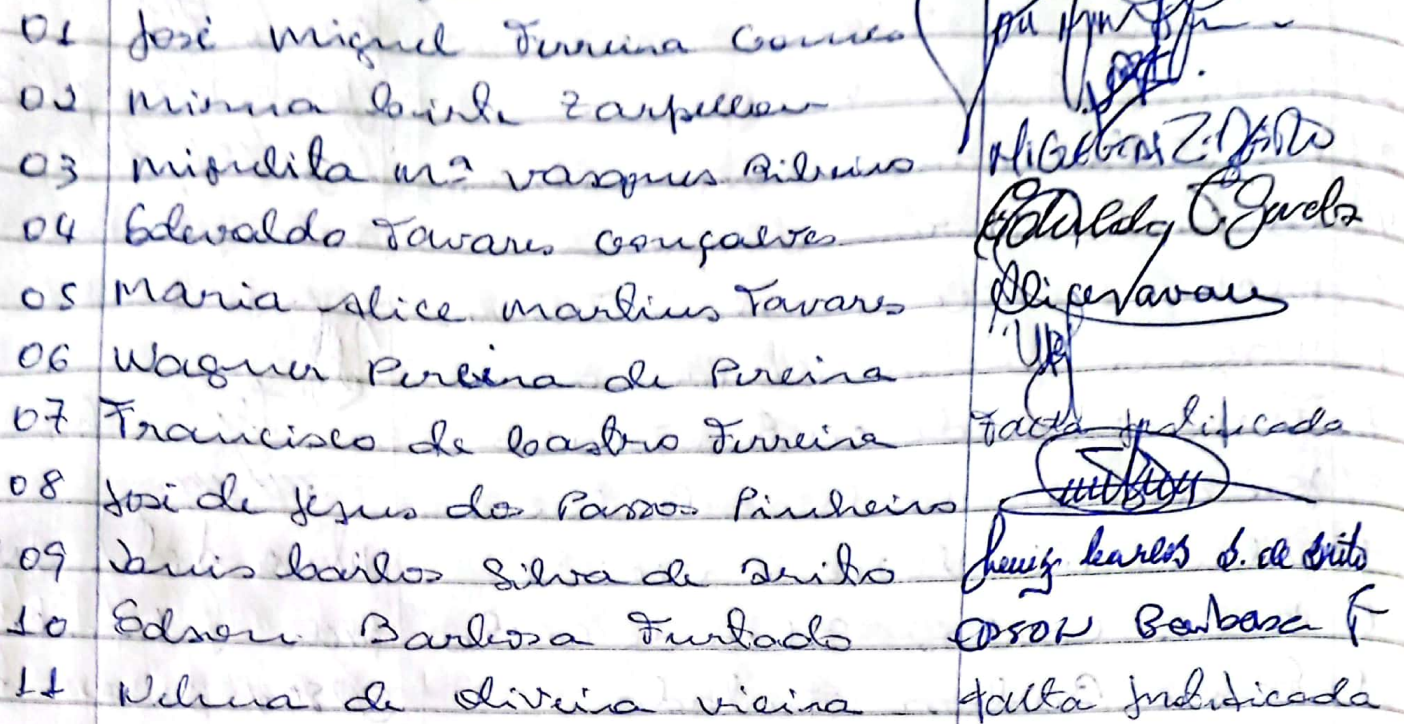 01 José Miguel Ferreira Gomes
02 Zarpellon
03 mª Vasques Ribeiro
04 Edevaldo Tavares Gonçalves
05 Maria Alice Martins Tavares Alice Tavares
06 Wagner Pereira de Pereira
07 Francisco de Castro Ferreira Falta Justificada
08 José de Jesus do Passos Pinheiro
09 Luis Carlos Silva de Brito Luiz Carlos S. de Brito
10 Edson Barbosa Furtado EDSON Barbosa F
11 de Oliveira Vieira falta Justificada